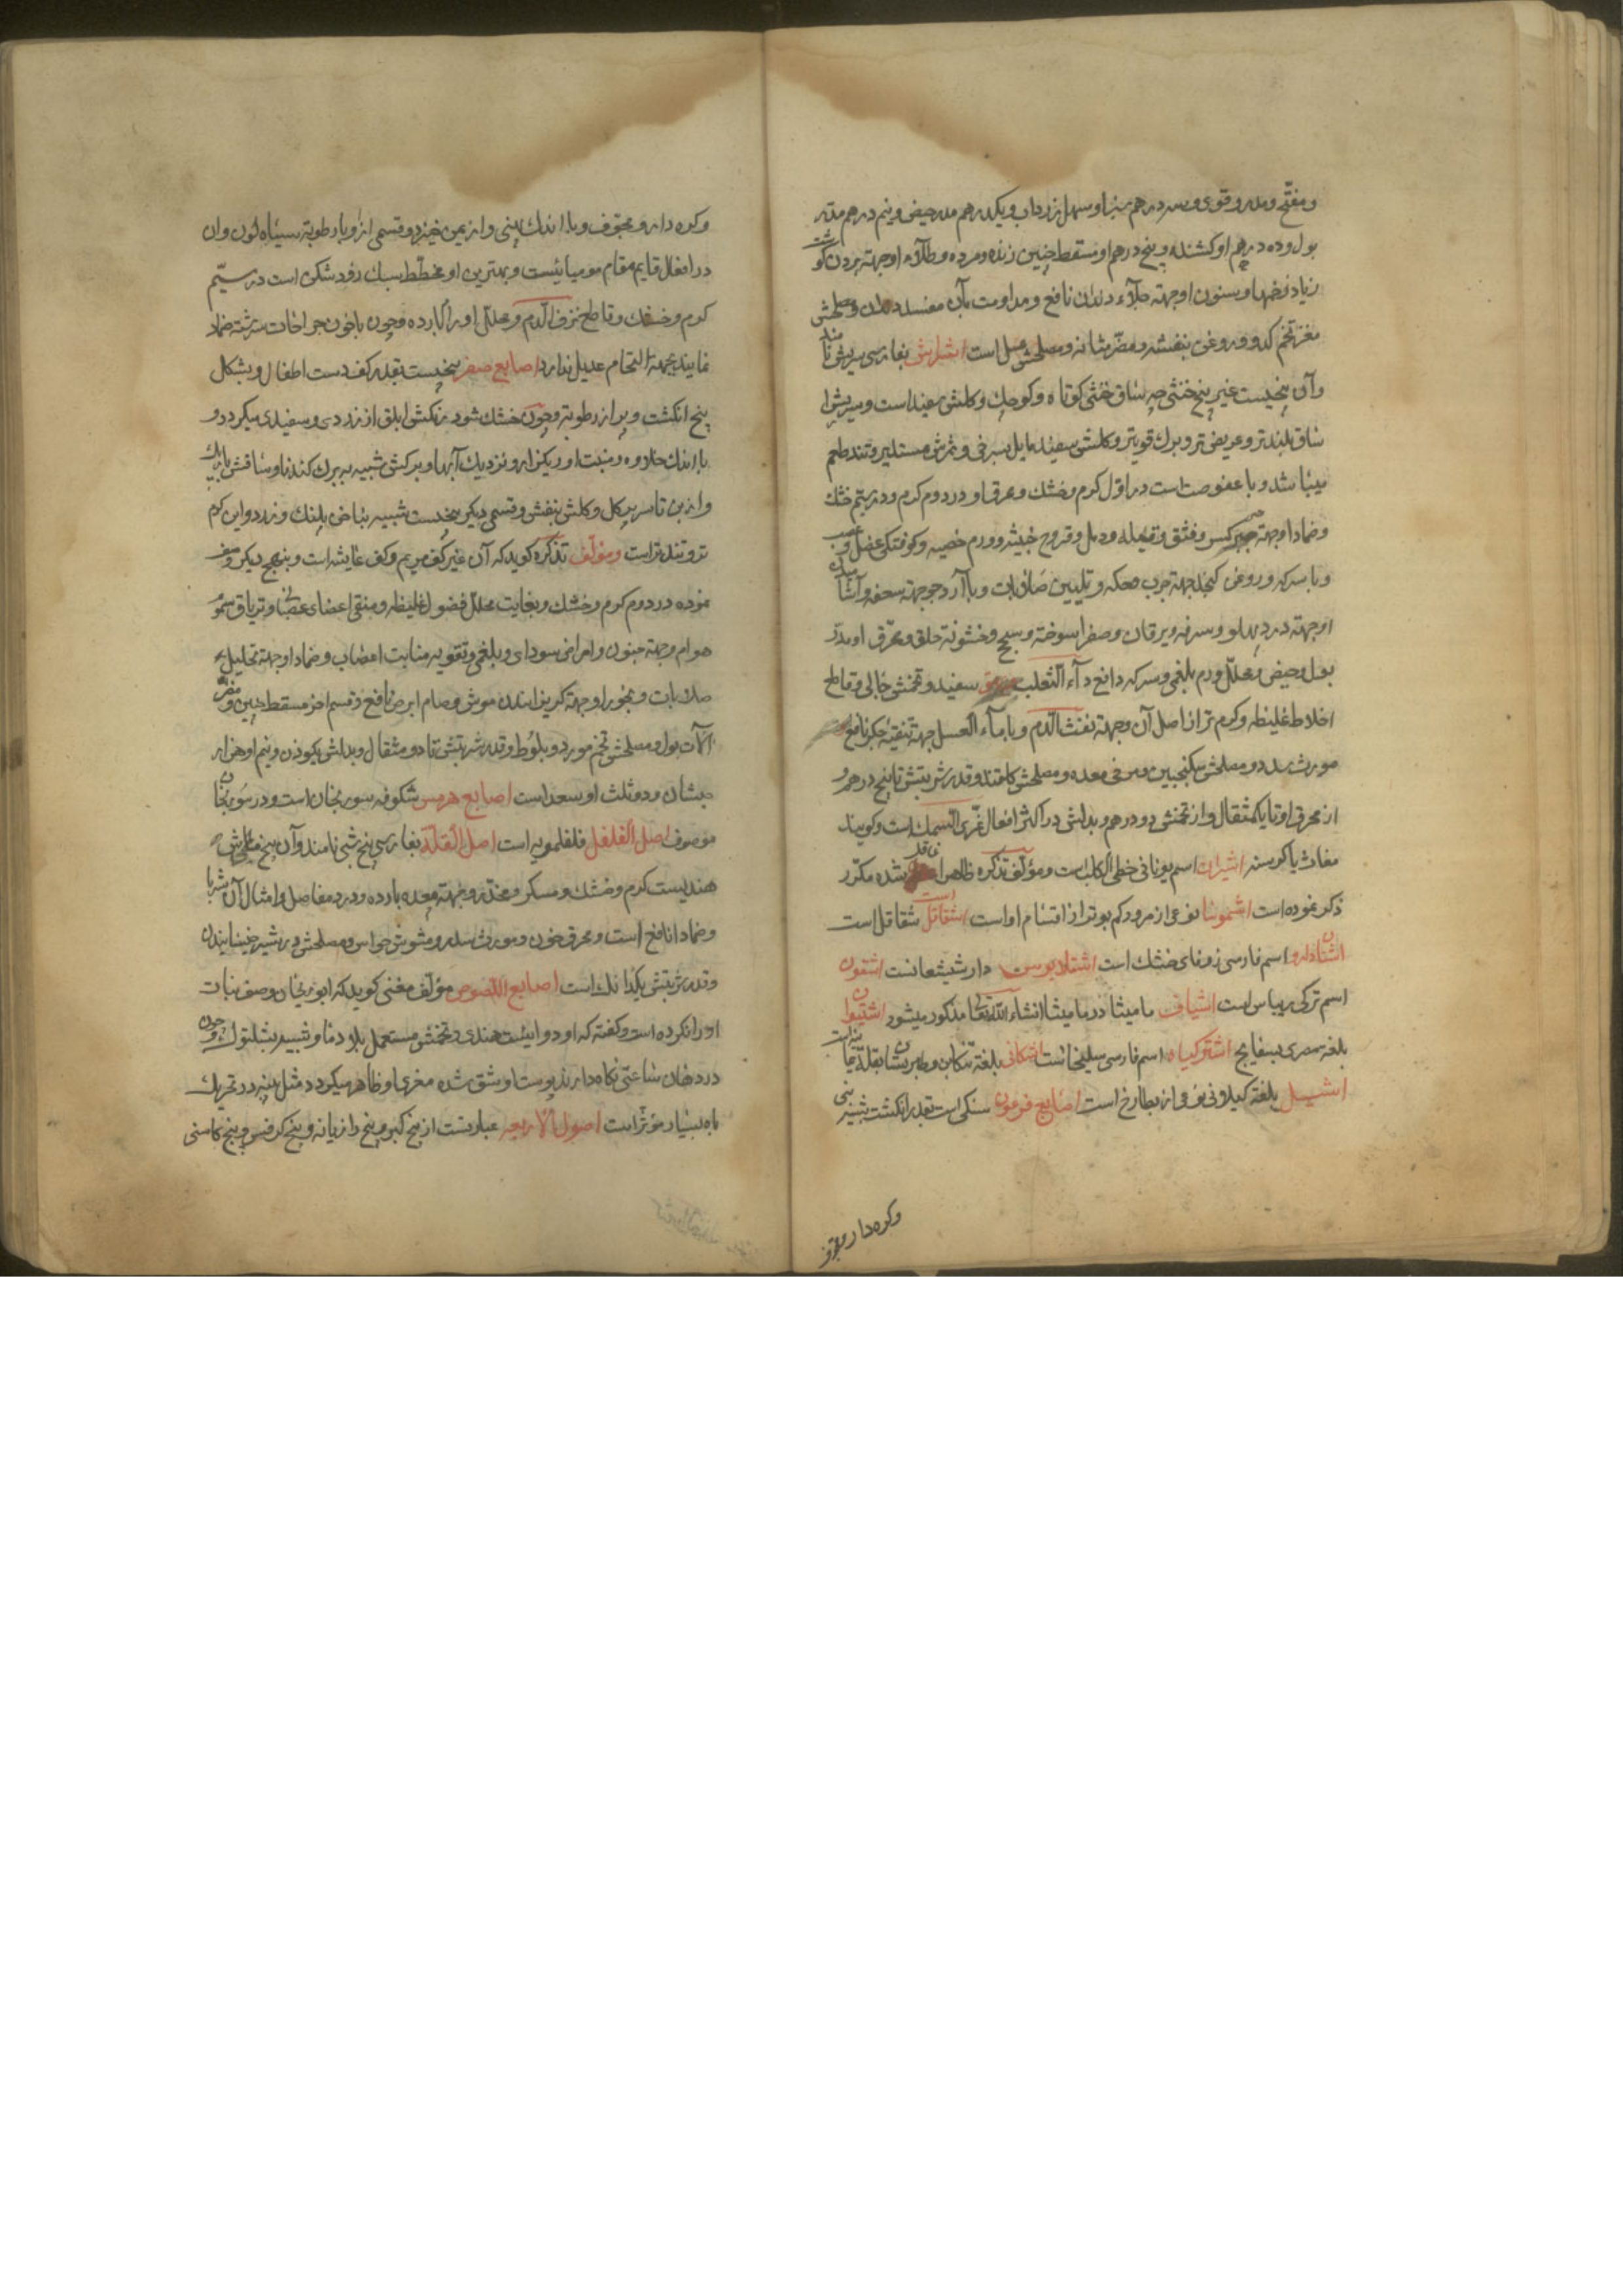 و مفتّح و مدر و قوی و سه درهم بنا و مسهل زرداب و یکدرهم مدر حیض و نیم درهم مدر
بول و ده درهم او کشنده و پنج درهم او مسقط جنین زنده و مرده و طلاء او جهته بردن گوشت
زیاد زخمها و سنون او جهته جلاء دندان نافع و مداومت بآن مفسد دندان و مصلحش
مغز تخم کدو و روغن بنفشه و مضر مثانه و مصلحش عسل است اشراش بفارسی سریش نامند
و آن بیخیست غیر بیخ خنثی چه ساق خنثی کوتاه و کوچک و کلش سفید است و سریش را
ساق بلندتر و عریض تر و برک قویتر و کلش سفید مایل بسرخی و ثمرش مستدیر و تند طعم
میباشد و با عفوصت است در اول کرم و خشك و محرق او در دوم کرم و در سیّم خشك
و ضماد او جهته جبر کسر و فتق و قیله و دمل و قروح خبیثه و ورم خصیه و کوفتکی عضل و عصب
و با سرکه و روغن کنجد جهته جرب و حکه و تلیین صلابات و با آرد جو جهته سعفه و آشامیدن
او جهته درد پهلو و سرفه و یرقان و صفرا سوخته و سحج و خشونة حلق و محرّق او مدرّ
بول و حیض و محلّل ورم بلغمی و سرکه دافع داء الثعلب و بهق سفید و تخمش جالی و قاطع
اخلاط غلیظه و کرم تر از اصل آن و جهته نفث الدّم و با ماء العسل جهته تنقیه جکر نافع
مورث سدد و مصلحش سکنجبین و مرخی معده و مصلحش کلقند و قدر شربتش تا پنج درهم و
از محرق او تا یکمثقال و از تخمش دو درهم و بدلش در اکثر افعال غری السمك است و کویند
مغاث یا کرسنه اشیراث اسم یونانی خصی الکلب است و مؤلف تذکره ظاهرا غافل شده مکرّر
ذکر نموده است اشموسا نوعی از مرو کم بوتر از اقسام او است اشقاقل شقاقل است
اشنان دارو اسم فارسی زوفای خشك است اشتلابوس دارشیشعانست اشقون
اسم ترکی ریباس است اشیاف مامیثا در مامیثا انشاء الله تعالی مذکور میشود اشتیوان
بلغة مصری بسفایج اشترکیاه اسم فارسی سلیخا است اشکانی بلغة تنکابن و طبرستان بقلة
اشپل بلغة کیلان نوعی از بطارخ است اصابع فرعون سنکی است بقدر انکشت شبیه بنی
و کره دار و مجوّف
و کره دار و مجوّف و با اندك پهنی و از یمن خیزد و قسمی از او با رطوبة سیاه لون و آن
در افعال قایم مقام مومیائیست و بهترین او مخطّط سبك زود شکن است در سیّم
کرم و خشك و قاطع نزف الدّم و محلّل اورام بارده و چون با خون جراحات سرشته ضماد
نمایند بجهته التحام عدیل ندارد اصابع صفر بیخیست بقدر کف دست اطفال و بشکل
پنج انکشت و پر از رطوبة و چون خشك شود رنکش ابلق از زردی و سفیدی میکردد و
با اندك حلاوه و منبت او ریکزار و نزدیك آبها و برکش شبیه به برك کندنا و ساقش باریك
و از بن تا سر پر کل و کلش بنفش و قسمی دیکر بیخیست شبیه بناخن پلنك و زرد و این کرم
تر و تندتر است و مؤلّف تذکره کوید که آن غیر کف مریم و کف عایشه است و بنهج دیکر وصف
نموده در دوم کرم و خشك و بغایت محلل فضول غلیظه و منقی اعضای عصبانی و تریاق سموم
هوام و جهته جنون و امراض سودای و بلغمی و تقویه منابت اعصاب و ضماد او جهته تحلیل
صلابات و بخور او جهته کریزانیدن موش و سام ابرص نافع و قسم اخر مسقط جنین و مضر
آلات بول و مصلحش تخم مورد و بلوط و قدر شربتش تا دو مثقال و بدلش یکوزن و نیم او هزار
جشان و دو ثلث او سعد است اصابع هرمس شکوفه سورنجان است و در سورنجان
موصوف اصل الفلفل فلفلمویه است اصل القلّه بفارسی بیخ شبی نامند و آن بیخ
هندیست کرم و خشك و مسکر و مخدّر و جهته معده بارده و درد مفاصل و امثال آن شربا
و ضمادا نافع است و محرق خون و مورث سدر و مشوش حواس و مصلحش در شیر خیسانیدن
و قدر شربتش یکدانك است اصابع اللصوص مؤلّف مغنی کوید که ابو ریحان وصف نبات
او را نکرده است و کفته که او دوائیست هندی و تخمش مستعمل بلاد ما و شبیه بشلتوك و چون
در دهان ساعتی نکاه دارند پوست او شق شده مغزی او ظاهر میکردد مثل پنبه و در تحریك
باه بسیار مؤثر است اصول الاربعه عبارتست از بیخ کبر و بیخ رازیانه و بیخ کرفس و بیخ کاسنی